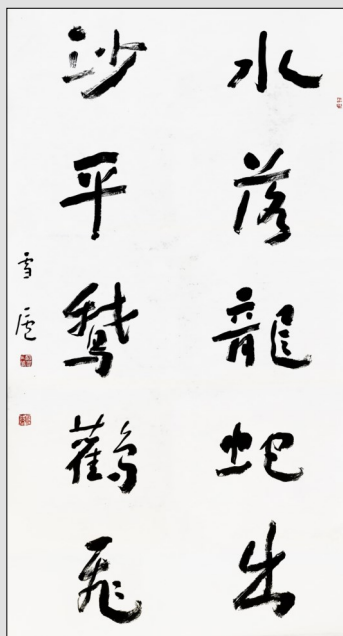 水落龍蛇出
沙平鵝鸛飛
雪廬